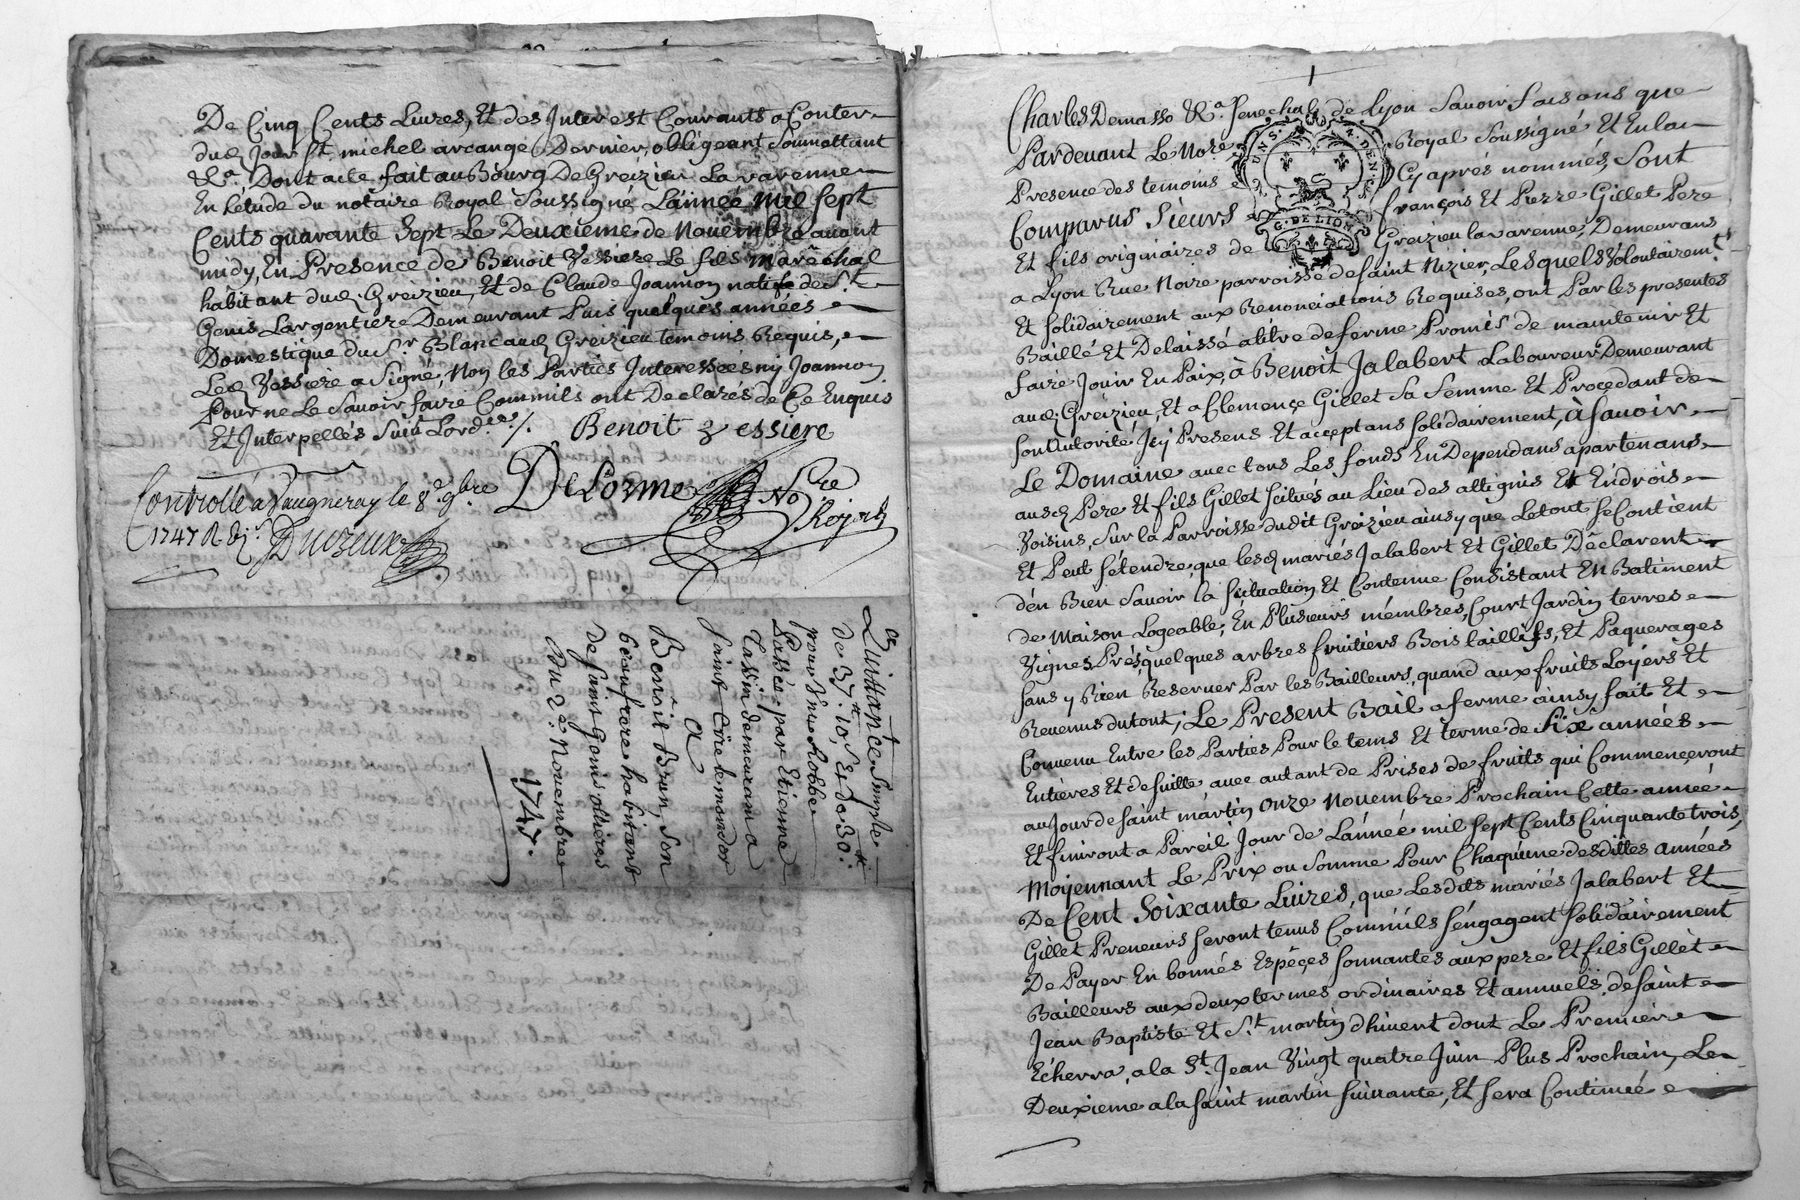 De Cinq Cents Livres, Et des Interest Courants a Conter
dud Jour St. michel arcange Dernier, obligeant Soumettant
&a. Dont acte fait au Bourg De Greizieu La varenne
En l'etude du notaire Royal Soussigné, L'année Mil Sept
Cents quarante Sept Le Deuxieme de Novembre avant
midy, En Presence de Benoit Vessiere Le fils maréchal
habitant dud. Greizieu, Et de Claude Joannon natif de St.
Genis Largentiere Demeurant Puis quelques années
Domestique du Sr. Blanc aud. Greizieu temoins Requis,
Led. Vessiere a Signé, Non les Parties Interessées ny Joannon
Pour ne Le Savoir faire Comm'ils ont Declarés de Ce Enquis
Et Interpellés Suivt Lord.ces /. Benoit vessiere
DeLorme No.re
Royal
Controllé a Vaugneray le 8e. 9bre
1747 R
Quittance Simple
de 37.# 10.s Et de 30.#
pour une Robbe
Passée par Etienne
demeurant a
Saint
a
Benoit Brun, Son
Beaufrere habitant
de Saint Genis
Du 2e. Novembre
1747.
1
Charles Demasso &a. Senechal de Lyon Savoir faisons que
G. DE LION
Pardevant Le No.re Royal Soussigné Et En la
Presence des temoins Cy aprés nommés, Sont
Comparus Sieurs françois Et Pierre Gillet Pere
Et fils originaires de Greizieu la varenne, Demeurans
a Lyon Rue Noire parroisse de saint Nizier, Lesquels Volontairemt.
Et Solidairement aux Renonciations Requises, ont Par les presentes
Baillé Et Delaissé a titre de ferme Promis de maintenir Et
faire Jouir En Paix, à Benoit Jalabert Laboureur Demeurant
aud. Greizieu, Et a Clemençe Gillet Sa femme Et Procedant de
Son Autorité, Icy Presens Et acceptans Solidairement, à Savoir
Le Domaine avec tous Les fonds En Dependans apartenans
ausd. Pere Et fils Gillet Scitués au Lieu des attignis Et Endrois
Voisins, Sur la Parroisse dudit Greizieu ainsy que Le tout Se Contient
Et Peut s'étendre, que lesd. mariés Jalabert Et Gillet Déclarent
d'en Bien Savoir la Scituation Et Contenue Consistant En Batiment
de Maison Logeable, En Plusieurs mémbres, Court Jardin terres
Vignes, Prés, quelques arbres fruitiers Bois taillifs, Et Paquerages
Sans y Rien Reserver Par les Bailleurs, quand aux fruits Loyers Et
Revenus du tout; Le Present Bail a ferme ainsy fait Et
Convenu Entre les Parties Pour le tems Et terme de Six années
Entiéres Et de suitte avec autant de Prises de fruits qui Commençeront
au Jour de saint martin Onze Novembre Prochain Cette année
Et finiront a Pareil Jour de L'année mil Sept Cents Cinquante trois,
Moyennant Le Prix ou Somme Pour Chaquune desdittes années
De Cent Soixante Livres, que Lesdits mariés Jalabert Et
Gillet Preneurs Seront tenus Comm'ils S'engagent Solidairement
De Payer En bonnes Espéçes Sonnantes aux pere Et fils Gillet
Bailleurs aux deux termes ordinaires Et annuels, de saint
Jean Baptiste Et St. martin d'hivert dont Le Premier
Echerra, a la St. Jean Vingt quatre Juin Plus Prochain, Le
Deuxieme a la saint martin Suivante, Et Sera Continué